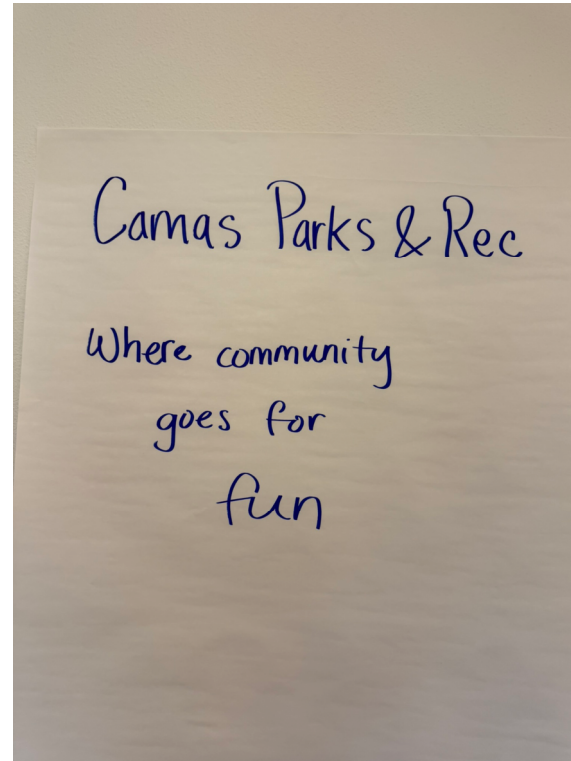 Camas Parks & Rec
Where community
goes for
fun